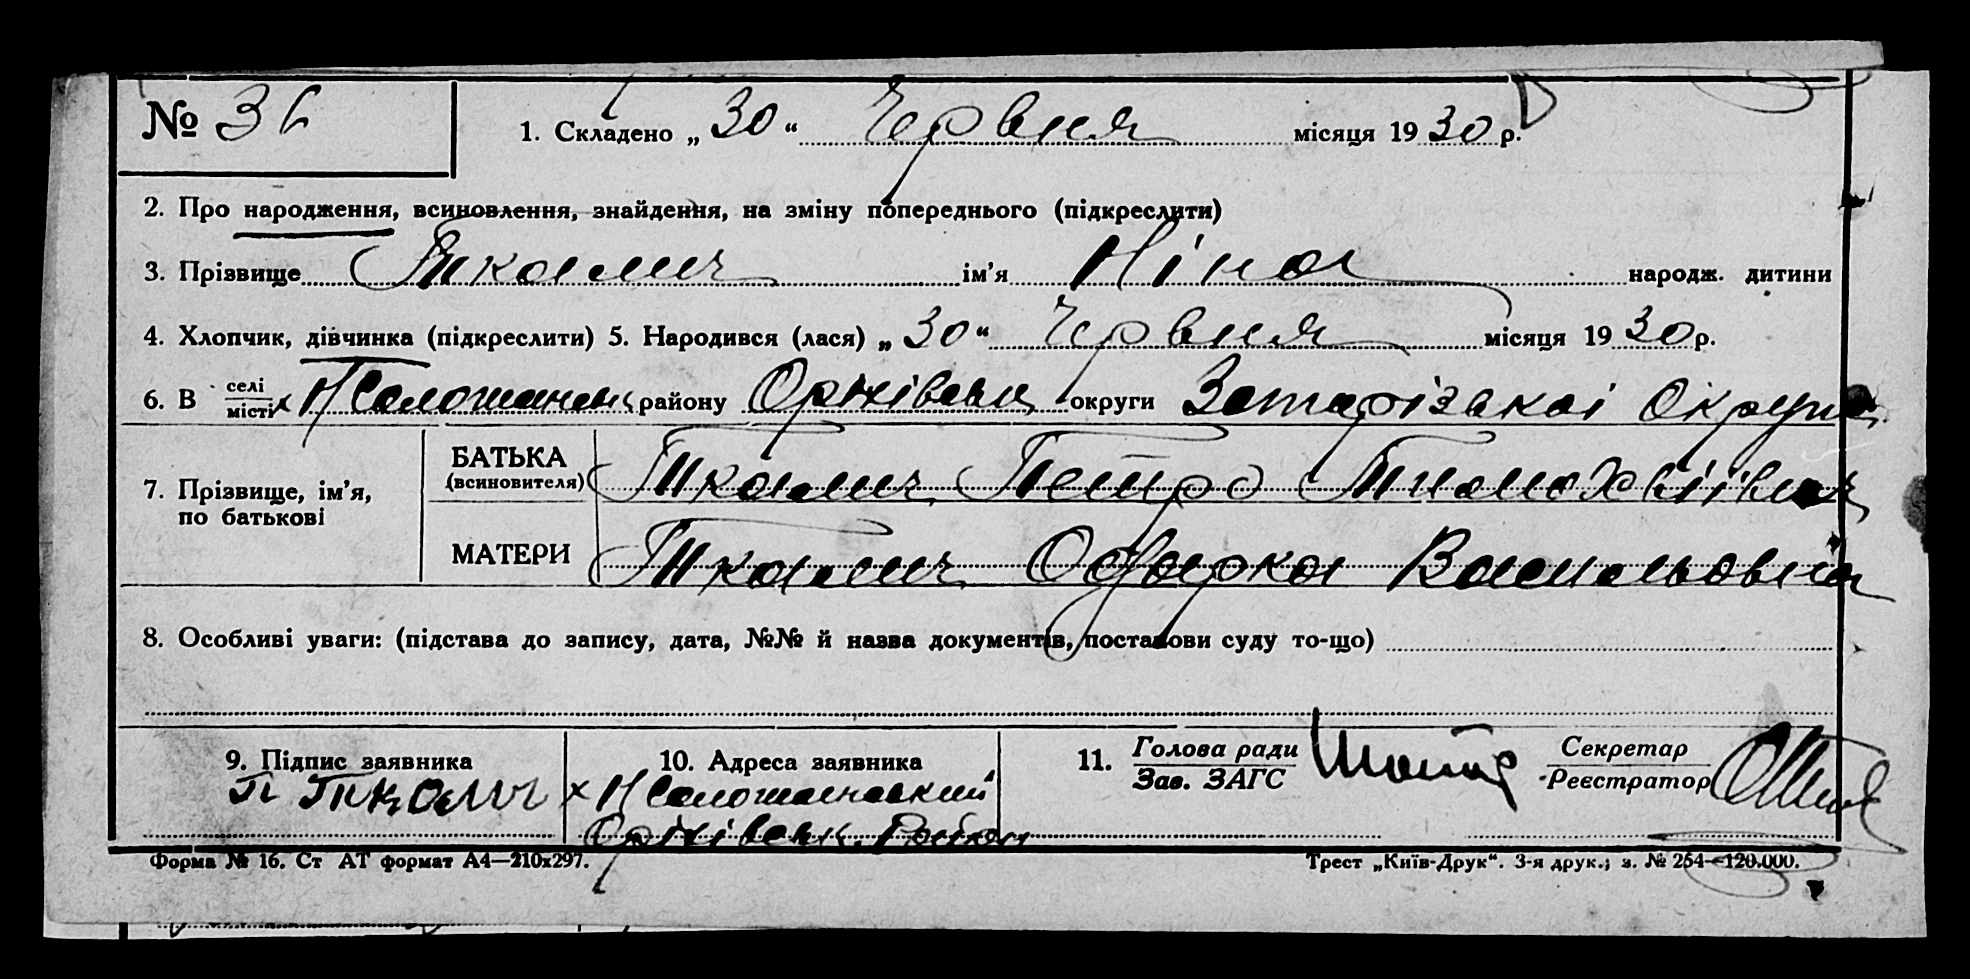 № 36
1. Складено „ 30 “ Червня місяця 19 30 р.
2. Про народження, всиновлення, знайдення, на зміну попереднього (підкреслити)
3. Прізвище Ткалич ім’я Ніна народж. дитини
4. Хлопчик, дівчинка (підкреслити) 5. Народився (лася) „ 30 “ Червня місяця 19 30 р.
6. В селі
місті району Оржівськ округи округи
7. Прізвище, ім’я, по батькові
БАТЬКА (всиновителя) Ткалич Петро
МАТЕРИ Ткалич Одарка Василовна
8. Особливі уваги: (підстава до запису, дата, №№ й назва документів, постанови суду то-що)
9. Підпис заявника
П Ткалич
10. Адреса заявника
х Н
Район
11. Голова ради
Зав. ЗАГС
Секретар
Реєстратор
Форма № 16. Ст АТ формат А4—210х297.
Трест „Київ-Друк“. 3-я друк.; з. № 254—120.000.